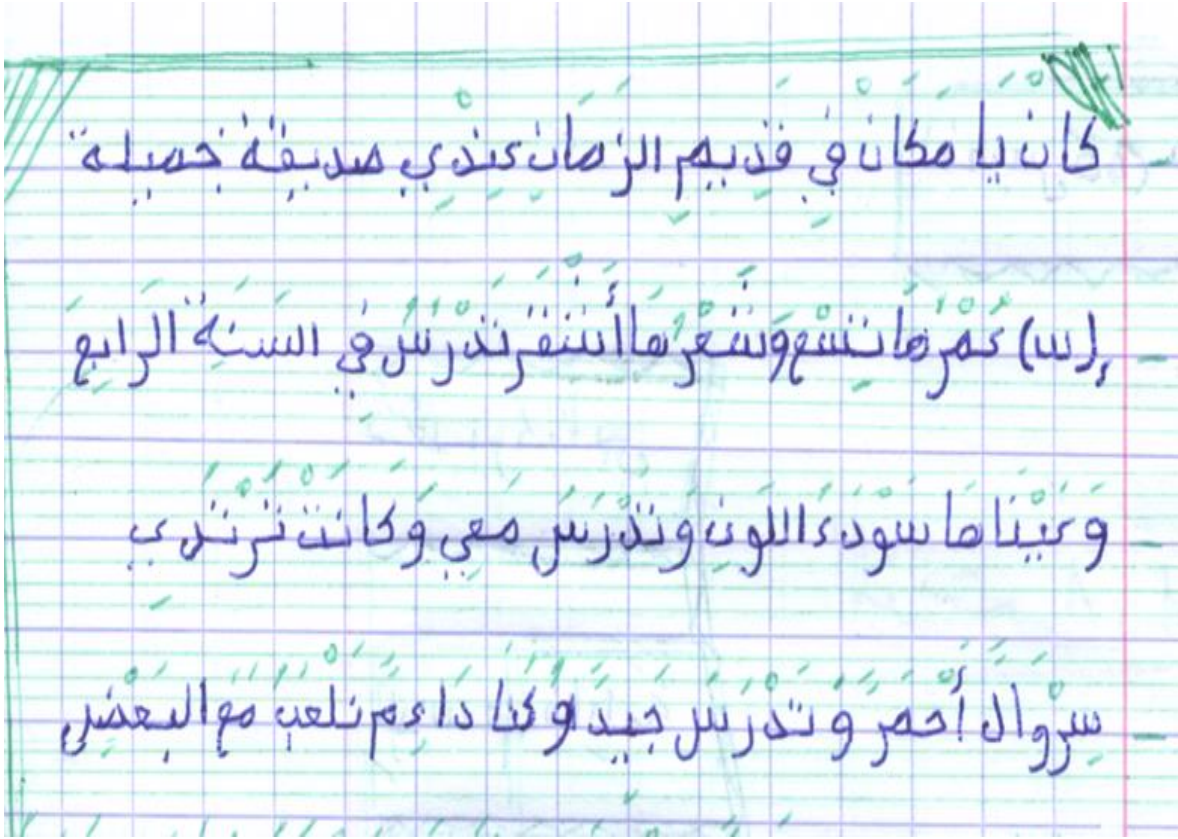 كان يا مكان في قديم الزمان عندي صديقة جميلة
إ(س) عمرها تسع وشعرها أشقر تدرس في السنة الرابع
وعيناها سوداء اللون وتدرس معي وكانت ترتدي
سروال أحمر وتدرس جيدا وكنا داءم نلعب مع البعض